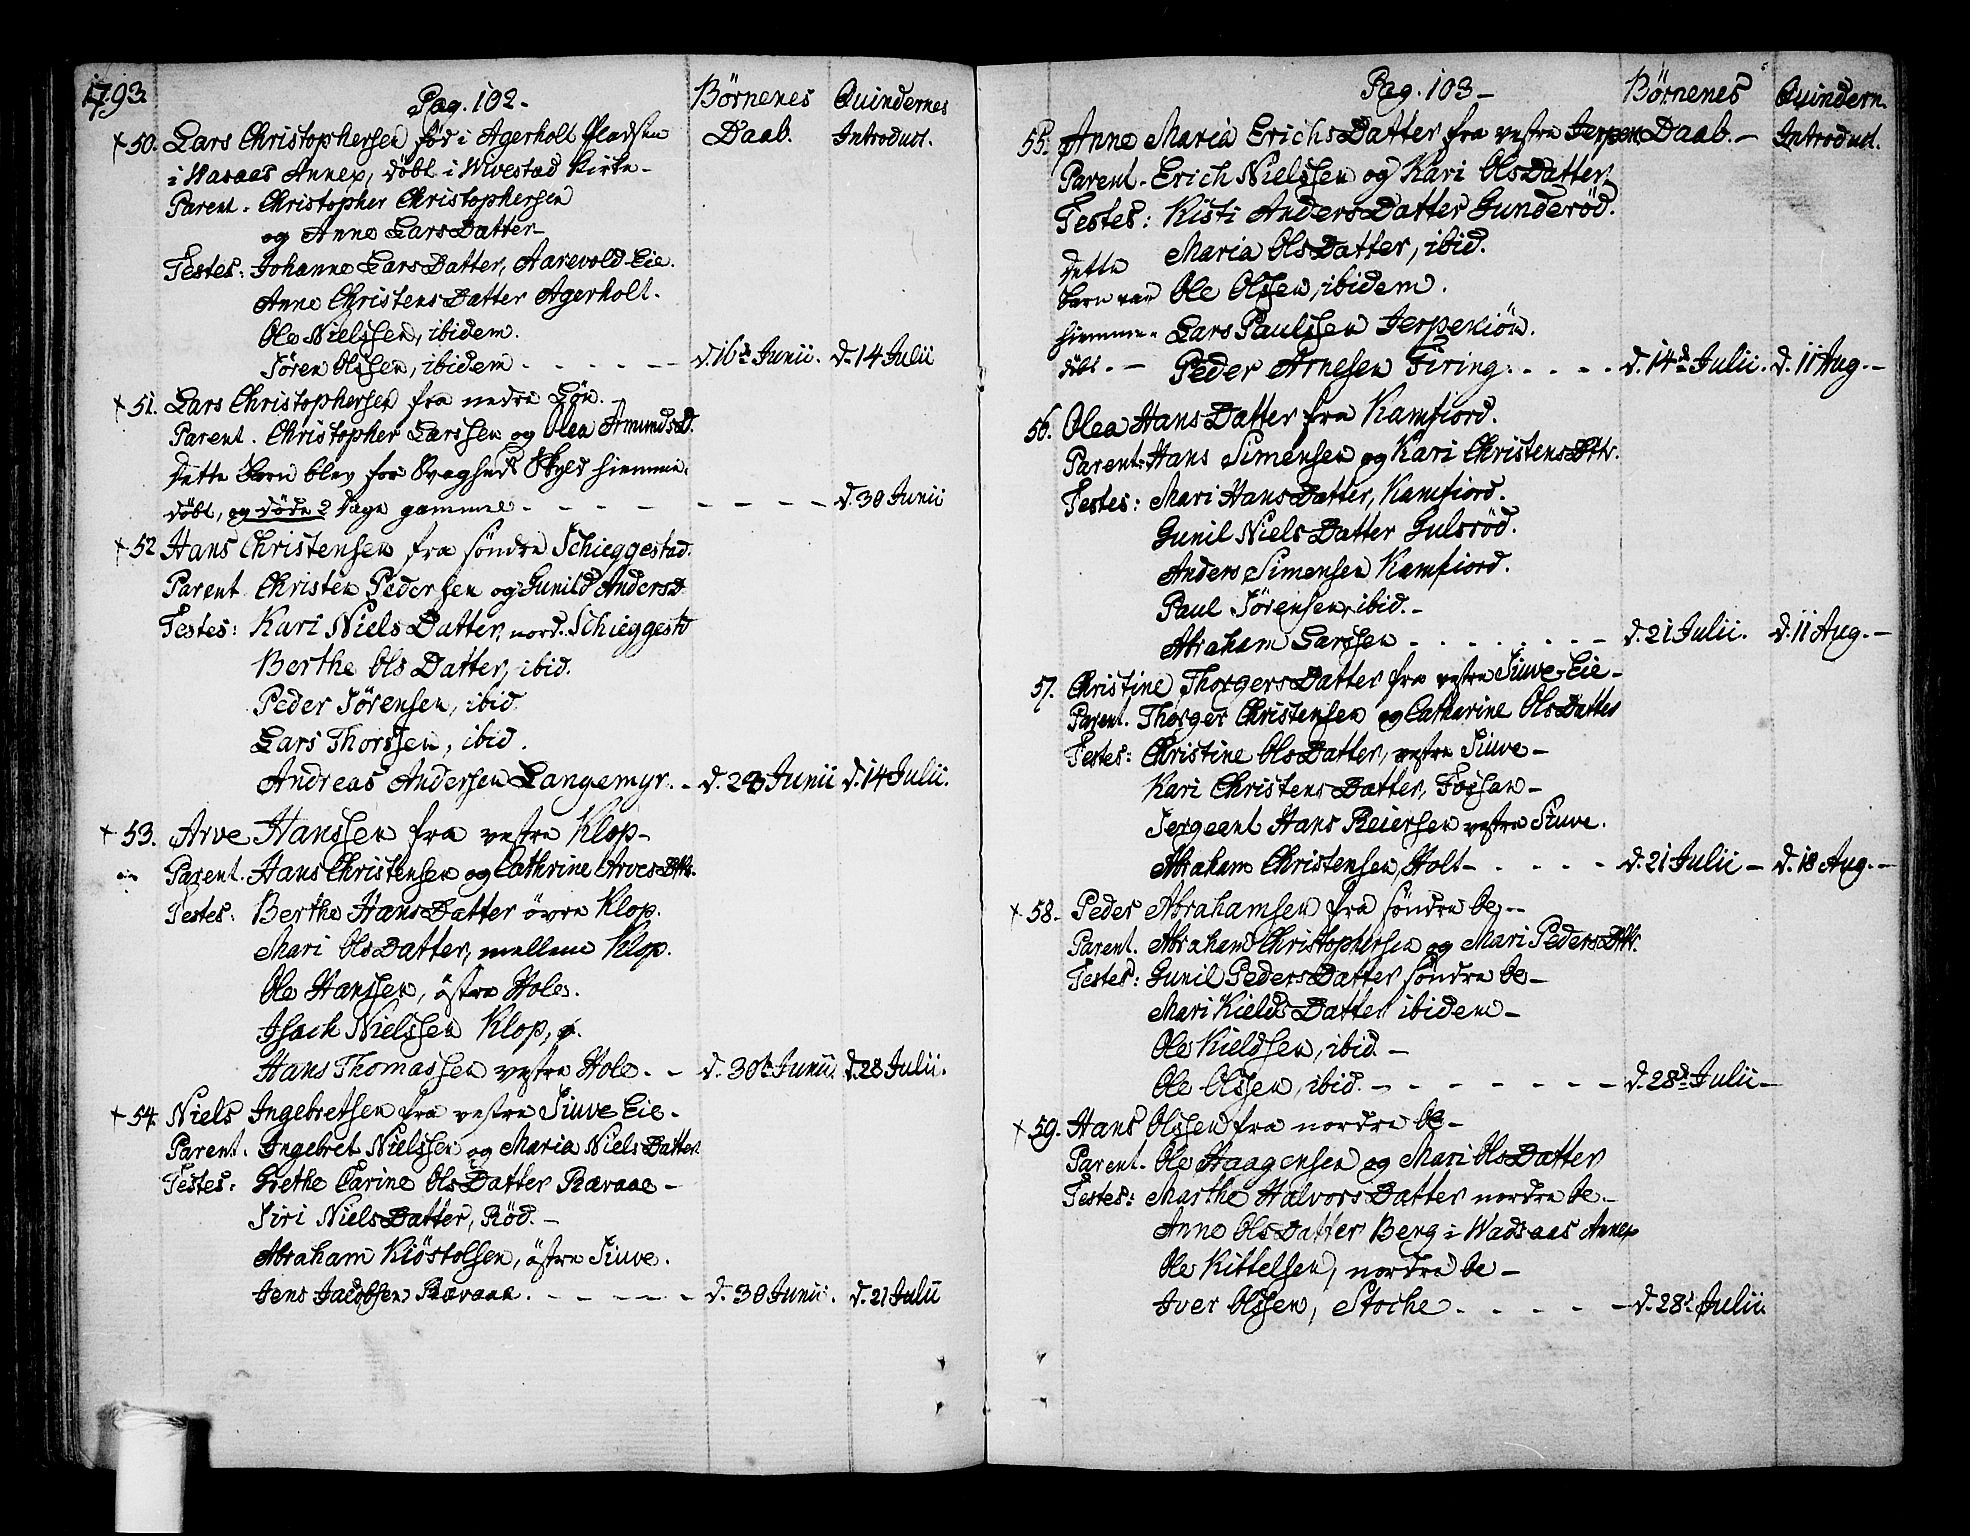 1793.
Pag. 102-
Börnenes
Daab.
Quindernes
Introduct.
+ 50. Lars Christophersen fød i Agerholt Pladsen
i Wasaas Annex, döbt i Wivestad Kirke-
Parent. Christopher Christophersen
og Anne LarsDatter-
Testes: Johanne LarsDatter, Aarevold Eie.
Anne ChristensDatter Agerholt.
Ole Nielssen, ibidem.
Jören Olssen, ibidem - - - - - - d. 16de Junii. d. 14 Julii
+ 51. Lars Christophersen fra nedre Løn.
Parent. Christopher Larssen og Olea Amunds D.
Dette Barn blev for Svagheds Skyld hiemme-
döbt, og döde 2 Dage gammel - - - - - - - d. 30 Junii
+ 52 Hans Christensen fra söndre Schieggestad.
Parent Christen Pedersen og Gunild Anders D.
Testes: Kari NielsDatter, nord. Schieggestd
Berthe OlsDatter, ibid.
Peder Jörensen, ibid.
Lars Thorssen, ibid.
Andreas Andersen Langemyr. - d. 23 Junii d. 14 Julii.
+ 53. Arve Hanssen fra vestre Klop-
Parent. Hans Christensen og Cathrine ArvesDttr.
Testes: Berthe HansDatter övre Klop.
Mari OlsDatter, mellem Klop.
Ole Hanssen, östre Hole.
Isach Nielssen Klop, ø.
Hans Thomassen vestre Hole. - d. 30te Junii. d. 28 Julii.
+ 54. Niels Ingebretsen fra vestre Siuve Eie-
Parent. Ingebret Nielssen og Maria NielsDatter
Testes: Grethe Carine OlsDatter Ravaae-
Siri NielsDatter, Röd.-
Abraham Kiöstolsen, östre Siuve.
Jens Jacobsen Ravaae. - - - - - d. 30 Junii. d. 21 Julii
Pag. 103-
Börnenes
Daab.-
Quindern.
Introduct.
55. Anne Maria ErichsDatter fra vestre Jerpen
Parent. Erich Nielssen og Kari OlsDatter.
Testes: Kisti AndersDatter Gunderöd.
Maria OlsDatter, ibid.
Dette
Barn var Ole Olssen, ibidem.
hiemme- Lars Paulssen Jerpekiön.
döbt. - Peder Arnesen Firing. - - - - d. 14de Julii. d. 11 Aug.-
56. Olea HansDatter fra Kamfiord.
Parent: Hans Simensen og Kari ChristensDttr.
Testes: Mari HansDatter, Kamfiord.
Gunil NielsDatter Gulsröd.
Anders Simensen Kamfiord.
Paul Jörensen, ibid.-
Abraham Larssen - - - - - - - - d. 21 Julii. d. 11 Aug.-
57. Christine ThorgersDatter fra vestre Siuve-Eie-
Parent. Thorger Christensen og Catharine OlsDatter
Testes: Christine OlsDatter, vestre Siuve-
Kari ChristensDatter, Fossan-
Sergeant Hans Reiersen vestre Siuve.
Abraham Christensen, Holt- - - - - d. 21 Julii- d. 18 Aug.-
+ 58. Peder Abrahamsen fra söndre Be--
Parent. Abraham Christophersen og Mari PedersDttr.
Testes: Gunil PedersDatter söndre Be-
Mari KieldsDatter ibidem-
Ole Kieldsen, ibid.-
Ole Olssen, ibid.- - - - - - - - d. 28de Julii-
+ 59. Hans Olssen fra nordre Be-
Parent. Ole Haagensen og Mari OlsDatter
Testes: Marthe HalvorsDatter nordre Be.-
Anne OlsDatter Berg i Wadsaas Annex
Ole Kittelsen, nordre Be-
Iver Olssen, Stoche. - - - - - d. 28de Julii.